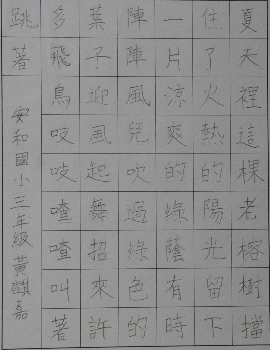 夏天裡這棵老榕樹擋
住了火熱的陽光留下
一片涼爽的綠蔭有時
陣陣風兒吹過綠色的
葉子迎風起舞招來許
多飛鳥吱吱喳喳叫著
跳著
安和國小三年級黃麒嘉